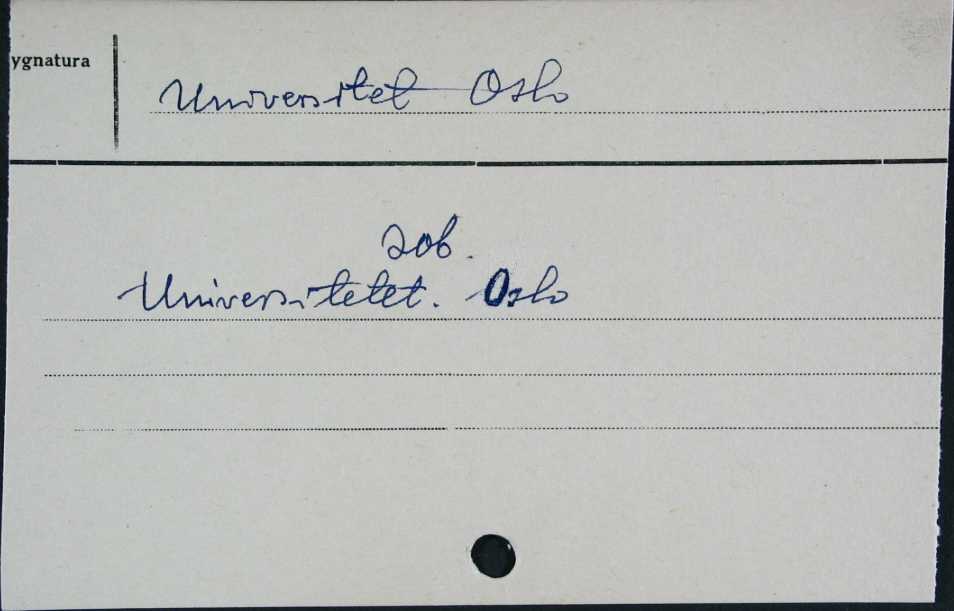 ygnatura
Universitet Oslo
zob.
Universitetet. Oslo